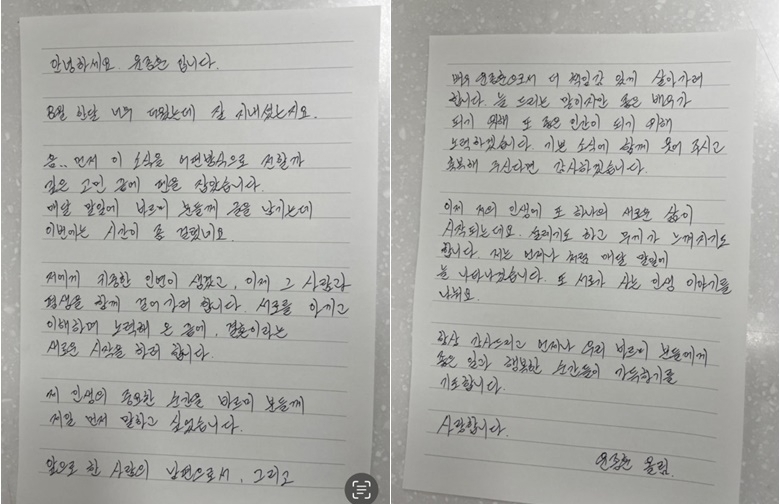 안녕하세요. 윤종훈 입니다.
8월 한달 너무 더웠는데 잘 지내셨는지요.
음.. 먼저 이 소식을 어떤방식으로 전할까
깊은 고민 끝에 펜을 잡았습니다.
매달 말일에 바르미 분들께 글을 남기는데
이번에는 시간이 좀 걸렸네요.
저에게 지중한 인연이 생겼고, 이제 그 사람과
평생을 함께 걸어가려 합니다. 서로를 아끼고
이해하며 노력해 온 끝에, 결혼이라는
새로운 시작을 하려 합니다.
제 인생의 중요한 순간을 바르미 분들께
제일 먼저 말하고 싶었습니다.
앞으로 한 사람의 남편으로서, 그리고
배우 윤종훈으로서 더 책임감 있게 살아가려
합니다. 늘 드리는 말이지만 좋은 배우가
되기 위해 또 좋은 인간이 되기 위해
노력하겠습니다. 기쁜 소식에 함께 웃어 주시고
축복해 주신다면 감사하겠습니다.
이제 저의 인생에 또 하나의 새로운 삶이
시작되는데요. 설레기도 하고 무게가 느껴지기도
합니다. 저는 언제나 처럼 매달 말일에
늘 나타나겠습니다. 또 서로가 사는 인생 이야기를
나눠요.
항상 감사드리고 언제나 우리 바르미 분들에게
좋은 일과 행복한 순간들이 가득하기를
기도합니다.
사랑합니다.
윤종훈 올림.